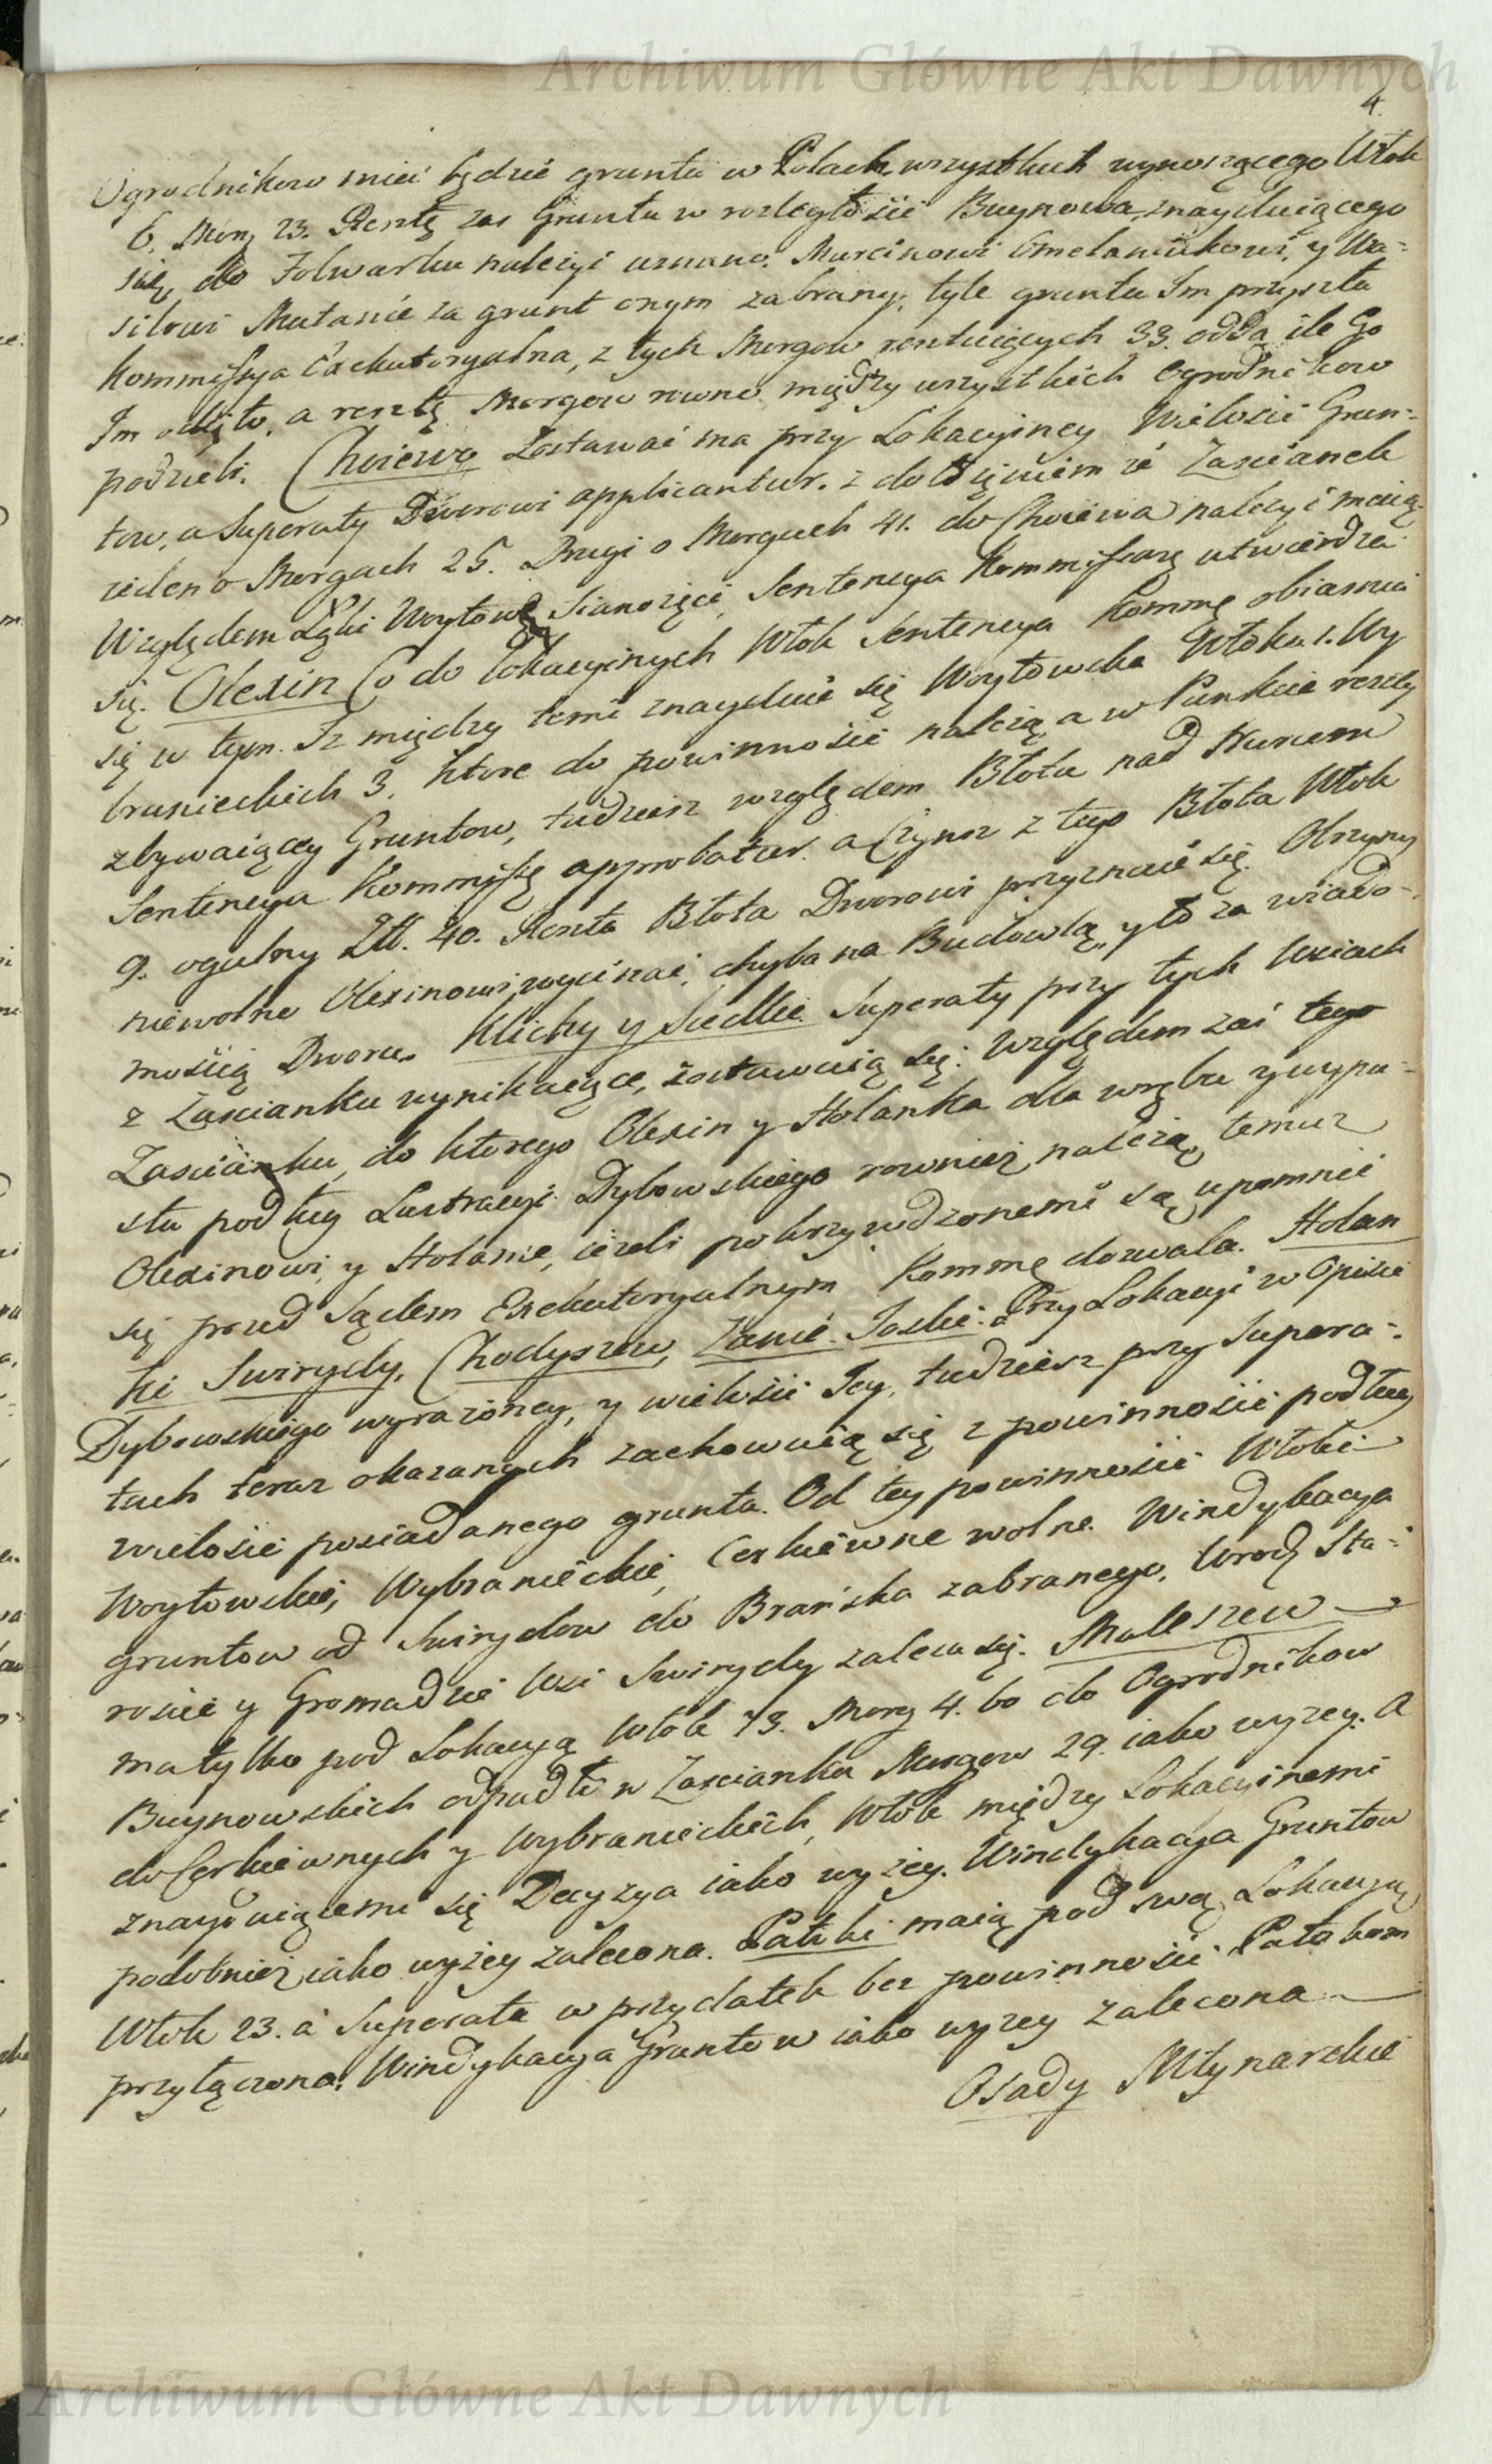 Archiwum Główne Akt Dawnych
4.
Ogrodnikow mieć będzie gruntu w Polach wszystkich wynoszącego Włok
6. Morg 23. Resztę zas Gruntu w rozległości Buynowa znayduiącego
się, do Folwarku należyć uznano. Marcinowi Omelaniukowi, y Wa-
silowi Mutasie za grunt onym zabrany, tyle gruntu Im przyszła
Kommissya Exekutoryalna, z tych Morgow restuiących 33. odda ile Go
Im odięto, a resztę Morgow rowno między wszystkich Ogrodnikow
podzieli. Choiewo Zostawać ma przy Lokacyiney Wielości Grun-
tow, a Superaty Dworowi applicantur. z dołożeniem że Zascianek
ieden o Morgach 25. Drugi o Morgach 41. do Choiewa należyć maią.
Względem Łąki Woytowey Sianożęci, Sentencya Kommissarz utwierdza
się. Olexin Co do Lokacyinych Włok Sentencya Kommę obiasnia
się w tym. Iż między temi znayduie się Woytowska Włoka 1. Wy
branieckich 3. ktore do powinności należą, a w Punkcie reszty
zbywaiącey Gruntow, tudziesz względem Błota nad Nurcem
Sentencya Kommissę approbatur. a Czynsz z tego Błota Włok
9. ogulny Zł. 40. Reszta Błota Dworowi przyznaie się. Olszyny
niewolno Olexinowi wycinać, chyba na Budowlą, y to za wiado-
mością Dworu. Klichy y Siedlce Superaty przy tych Wsiach
z Zascianku wynikaiące, zostawuią się: Względem zaś tego
Zascianku, do ktorego Olexin y Holanka dla wrębu y wypu-
stu podług Lustracyi Dybowskiego rownież należą, temuz
Olexinowi, y Holanie, ieżeli pokrzywdzonemi są upomnieć
się przed Sądem Exekutoryalnym Kommę dozwala. Holan
ki Swirydy, Chodyszew, Zanie. Joski. Przy Lokacyi w Opisie
Dybowskiego wyrażoney, y wielości Jey, tudziesz przy Supera-
tach teraz okazanych zachowuią się z powinności podług
wielości posiadanego gruntu. Od tey powinności Włoki
Woytowskie, Wybranieckie, Cerkiewne wolne. Windykacya
gruntow od Swirydow do Brańska zabranego, Urodz Sta-
rosćie y Gromadzie Wsi Swirydy zaleca się. Maleszew
ma tylko pod Lokacyą Włok 13. Morg 4. bo do Ogrodnikow
Buynowskich odpadło w Zascianku Morgow 29. iako wyzey. A
do Cerkiewnych y Wybranieckich, Włok między Lokacyinemi
znayduiącemi się Decyzya iako wyżey. Windykacya Gruntow
podobnież iako wyżey zalecona. Patoki maią pod swą Lokacyą
Włok 23. a Superata w przydatek bez powinności Patokom
przyłączona. Windykacya Gruntow iako wyzey zalecona
Osady Młynarskie
Archiwum Główne Akt Dawnych